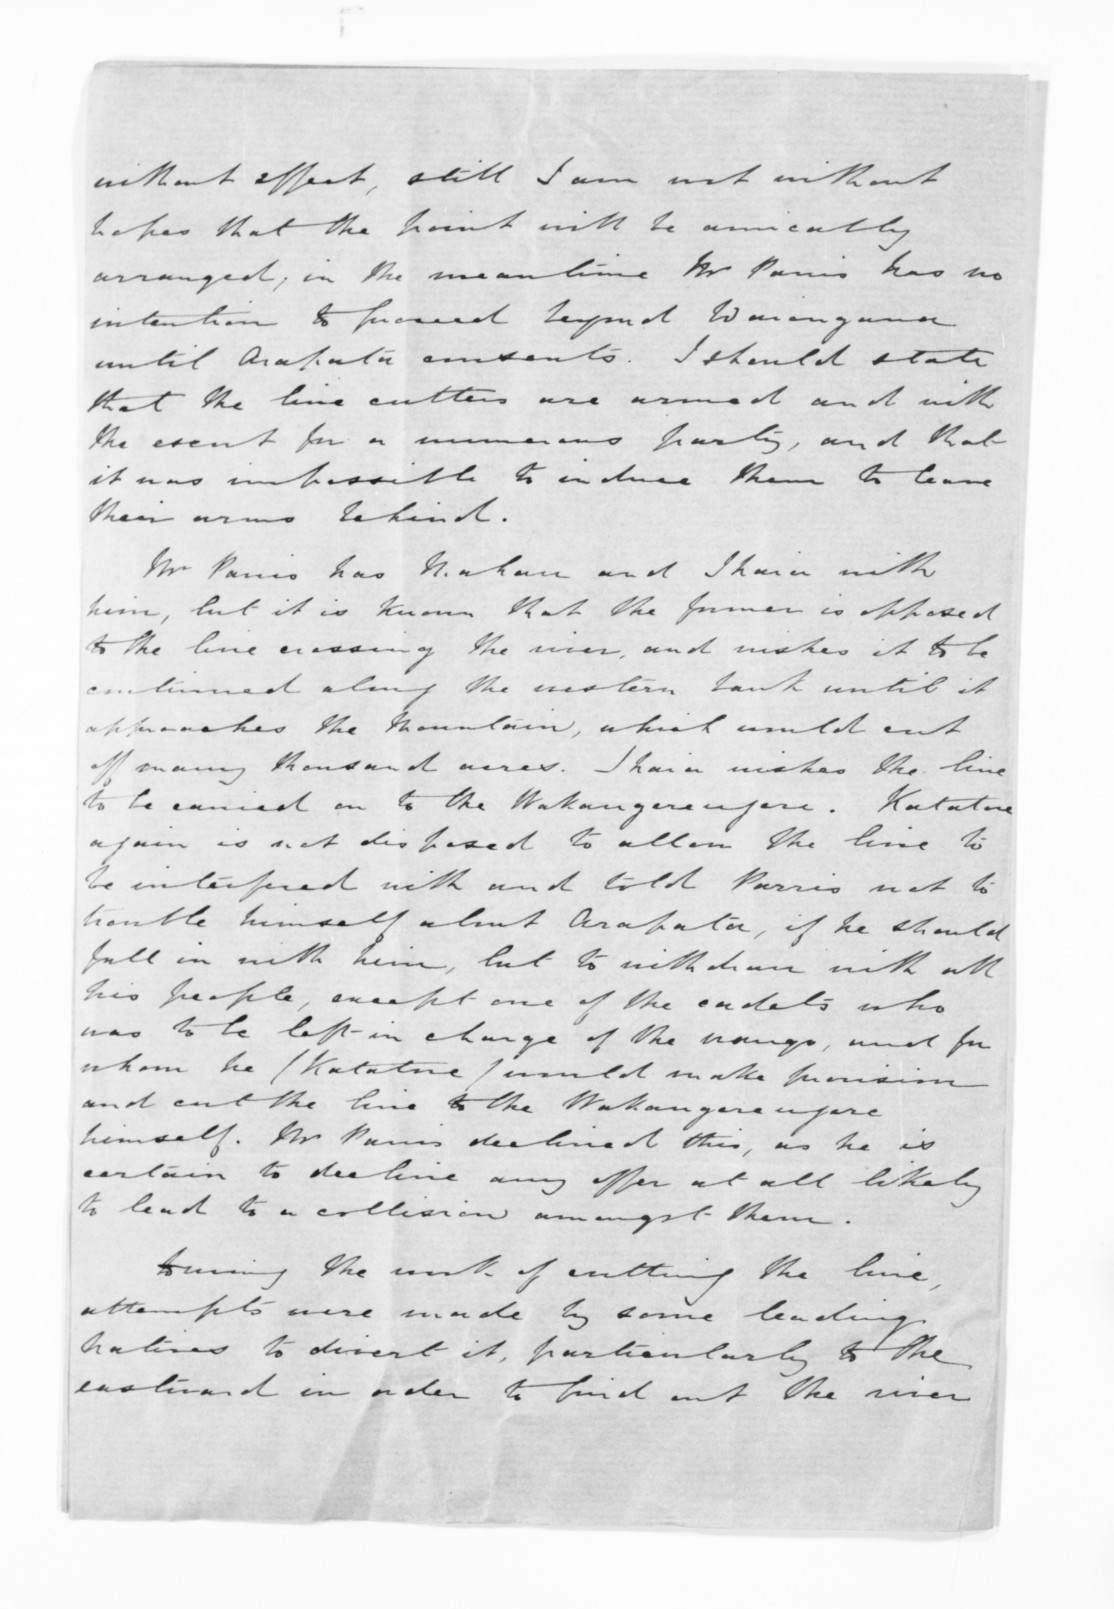 without effect, still I am not without
hopes that the point will be amicably
arranged; in the meantime Mr Parris has no
intention to proceed beyond Waiongana
until Arapata consents. I should state
that the line cutters are armed and with
the escort for a numerous party, and that
it was impossible to induce them to leave
their arms behind.
Mr Parris has Mahau and Ihaia with
him, but it is known that the former is opposed
to the line crossing the river, and wishes it to be
continued along the western bank until it
approaches the Mountain, which would cut
off many thousand acres. Ihaia wishes the line
to be carried on to the Wakangerengere. Katatore
again is not disposed to allow the line to
be interfered with and told Parris not to
trouble himself about Arapata, if he should
fall in with him, but to withdraw with all
his people, except one of the cadets who
was to be left in charge of the , and for
whom he (Katatore) would make provision
and cut the line to the Wakangerengere
himself. Mr Parris declined this, as he is
certain to decline any offer at all likely
to lead to a collision amongst them.
During the work of cutting the line,
attempts were made by some leading
natives to divert it, particularly to the
eastward in order to find out the river